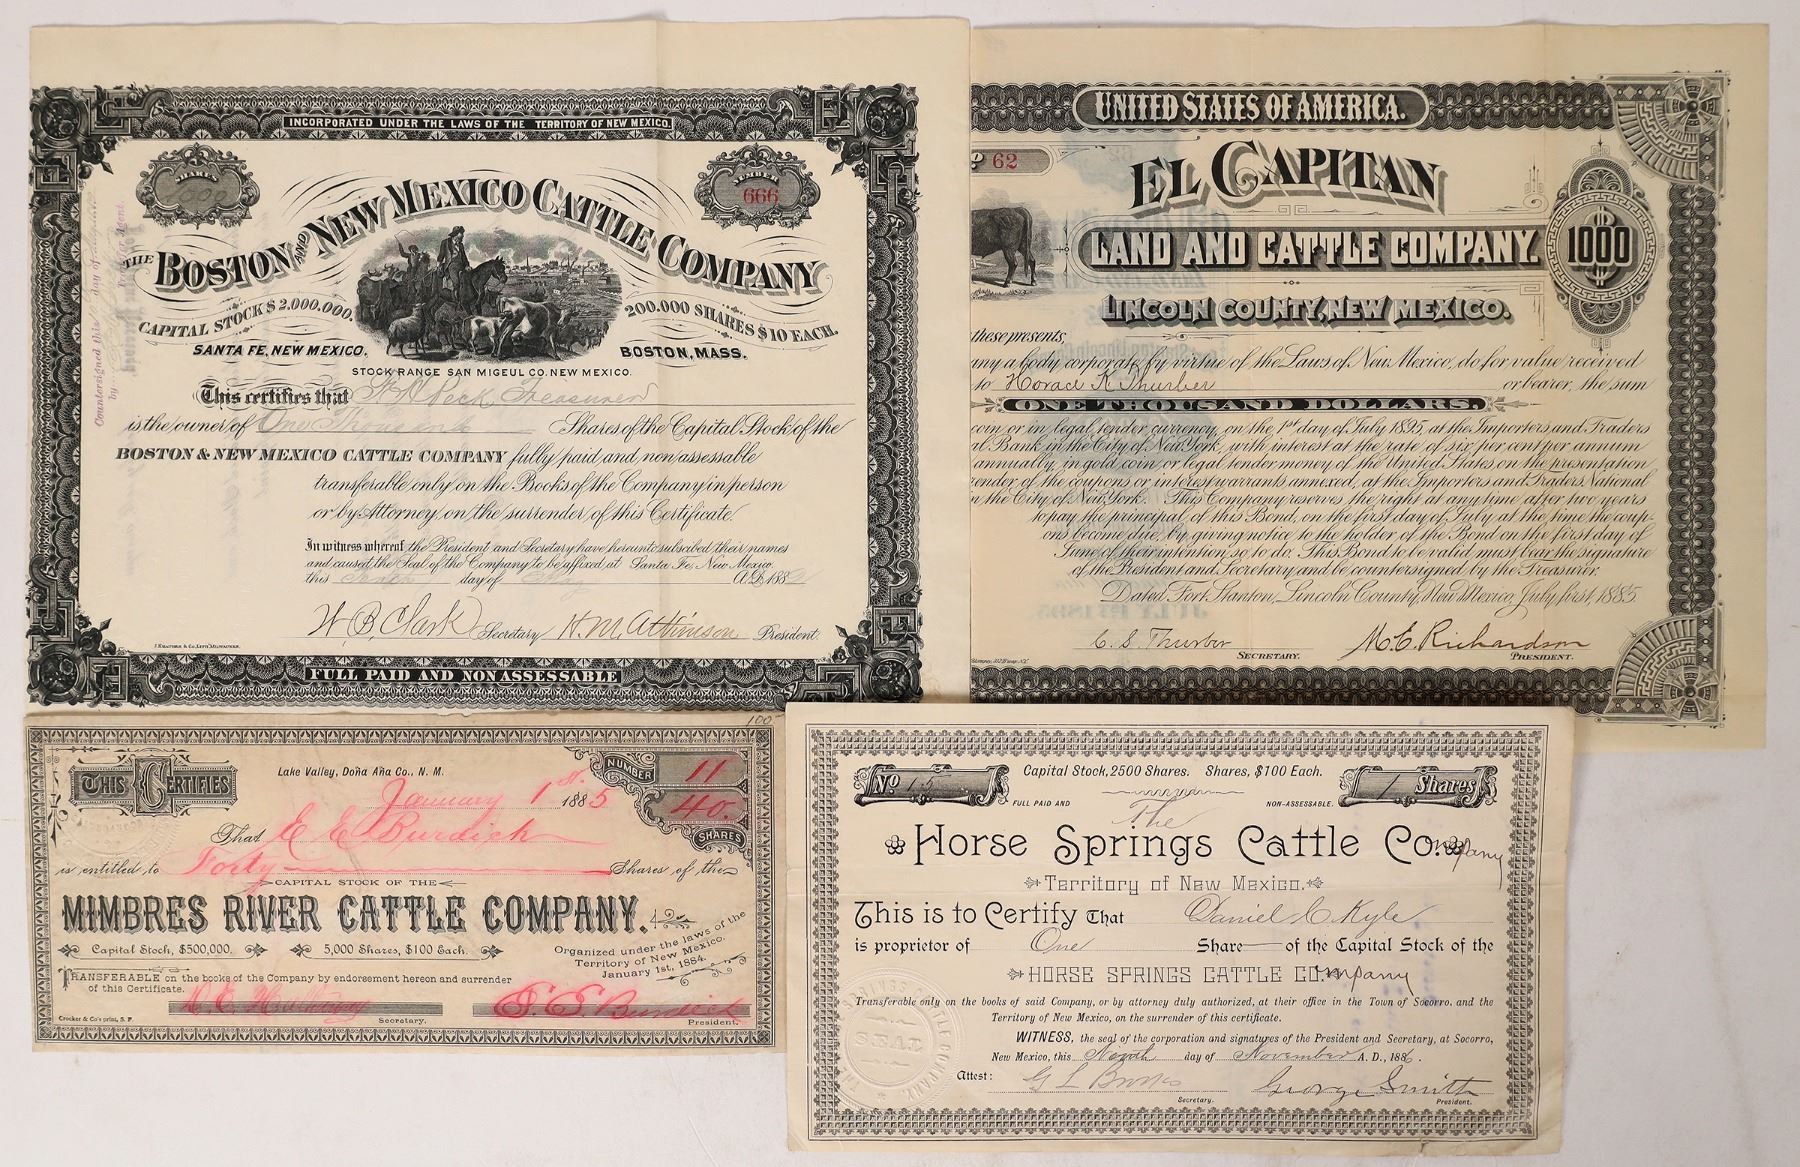 INCORPORATED UNDER THE LAWS OF THE TERRITORY OF NEW MEXICO.
SHARES
NUMBER
666
THE BOSTON AND NEW MEXICO CATTLE COMPANY
CAPITAL STOCK $ 2.000.000.
200.000 SHARES $10 EACH.
SANTA FE, NEW MEXICO.
BOSTON, MASS.
STOCK RANGE SAN MIGEUL CO. NEW MEXICO.
Countersigned this day of
by Transfer Agent.
This certifies that Peck Treasurer
is the owner of One Thousand Shares of the Capital Stock of the
BOSTON & NEW MEXICO CATTLE COMPANY fully paid and non assessable
transferable only on the Books of the Company in person
or by Attorney on the surrender of this Certificate.
In witness whereof the President and Secretary have hereunto subscibed their names
and caused the Seal of the Company to be affixed at Santa Fe, New Mexico
this day of May A.D. 188
W B. Clark Secretary H. M. Atkinson President.
FULL PAID AND NON ASSESSABLE
UNITED STATES OF AMERICA.
62
EL CAPITAN
LAND AND CATTLE COMPANY.
LINCOLN COUNTY, NEW MEXICO.
$
1000
these presents,
ny a body corporate by virtue of the Laws of New Mexico, do for value received
to Horace K Thurber or bearer, the sum
ONE THOUSAND DOLLARS.
coin or in legal tender currency, on the 1st day of July 1895, at the Importers and Traders
al Bank in the City of New York, with interest at the rate of six per cent per annum
annually, in gold coin or legal tender money of the United States on the presentation
render of the coupons or interest warrants annexed, at the Importers and Traders National
n the City of New York. This Company reserves the right at any time after two years
to pay the principal of this Bond, on the first day of July at the time the coup-
ons become due, by giving notice to the holder of the Bond on the first day of
June of their intention so to do. This Bond to be valid must bear the signature
of the President and Secretary and be countersigned by the Treasurer.
Dated, Fort Stanton, Lincoln County, New Mexico, July first, 1885.
C. S. Thurber SECRETARY.
M. C. Richardson PRESIDENT.
100
THIS CERTIFIES
Lake Valley, Doña Aña Co., N. M.
NUMBER 11
January 1st. 1885
40. SHARES
That E E Burdick
is entitled to Forty Shares of the
CAPITAL STOCK OF THE
MIMBRES RIVER CATTLE COMPANY.
Capital Stock, $500,000. 5,000 Shares, $100 Each.
Organized under the laws of the
Territory of New Mexico.
January 1st, 1884.
TRANSFERABLE on the books of the Company by endorsement hereon and surrender
of this Certificate.
Crocker & Co's print, S. F.
Secretary.
E. E. Burdick
President.
No 15
Capital Stock, 2500 Shares. Shares, $100 Each.
1 Shares
FULL PAID AND NON-ASSESSABLE.
The
Horse Springs Cattle Co.mpany
Territory of New Mexico.
This is to Certify That Daniel C Kyle
is proprietor of One Share of the Capital Stock of the
HORSE SPRINGS CATTLE CO.mpany
Transferable only on the books of said Company, or by attorney duly authorized, at their office in the Town of Socorro. and the
Territory of New Mexico, on the surrender of this certificate.
WITNESS, the seal of the corporation and signatures of the President and Secretary, at Socorro,
New Mexico, this day of November A. D., 1886.
Attest:
Secretary.
George Smith
President.
SEAL